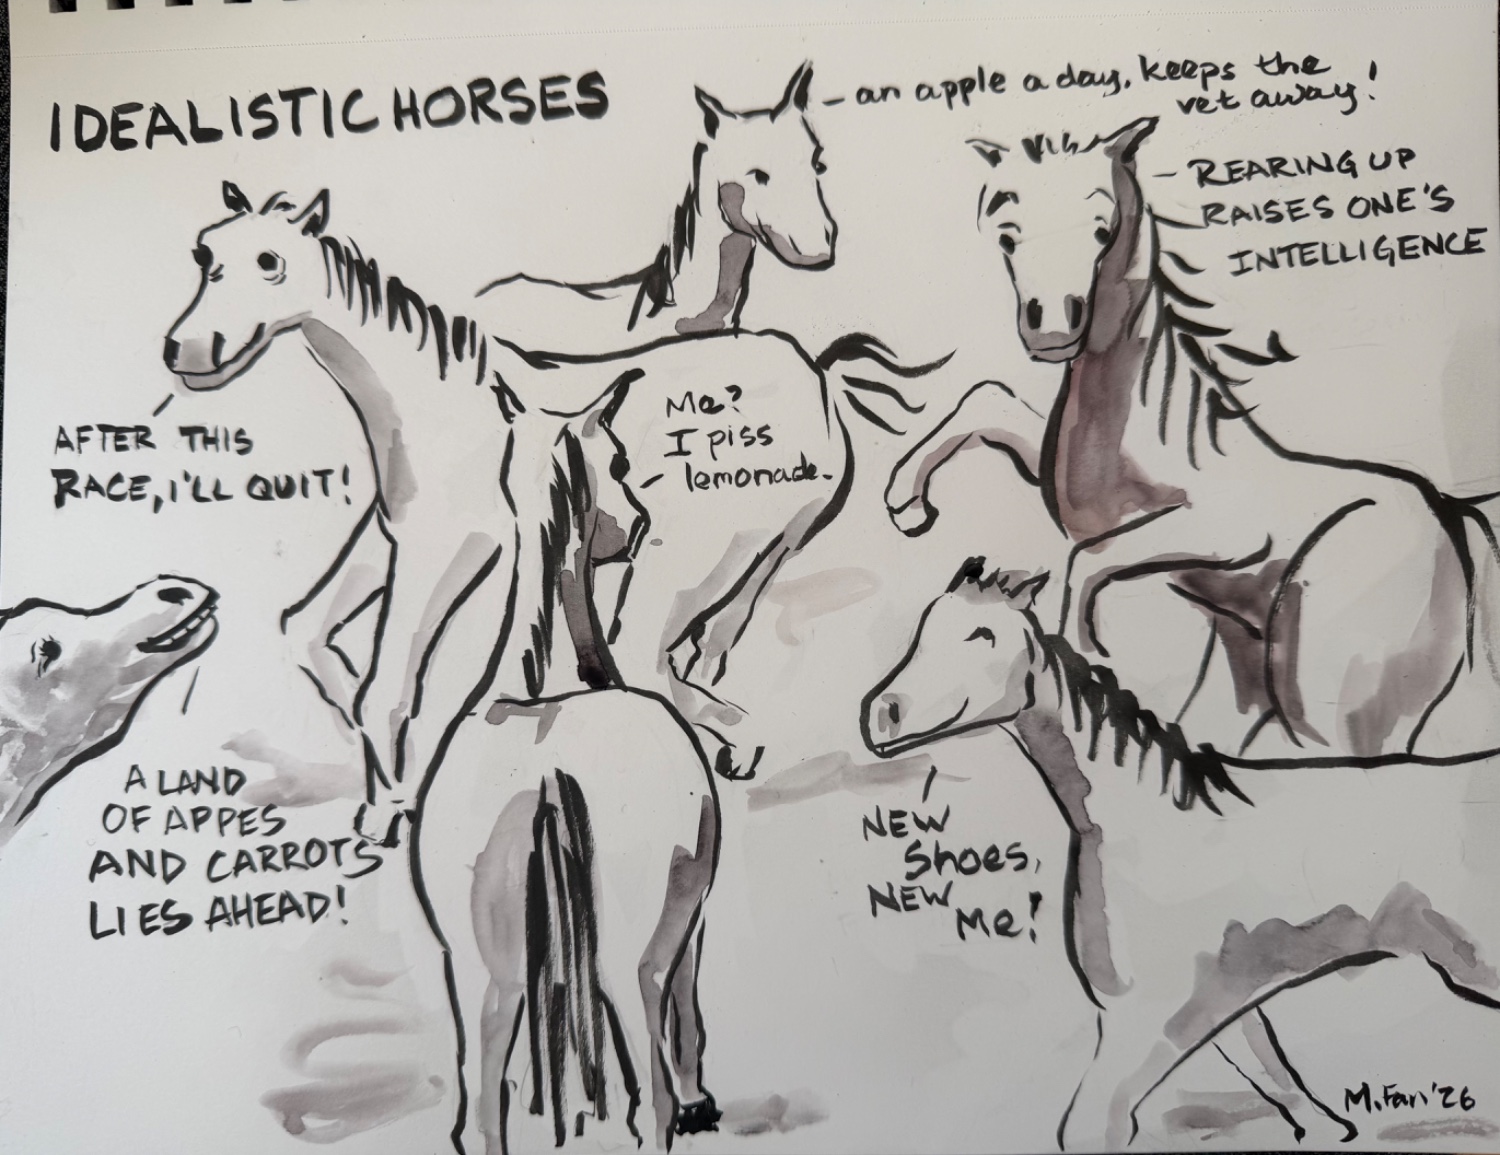 IDEALISTIC HORSES
- an apple a day, keeps the
vet away!
- REARING UP
RAISES ONE'S
INTELLIGENCE
AFTER THIS
RACE, I'LL QUIT!
Me?
I piss
lemonade.
A LAND
OF APPES
AND CARROTS
LIES AHEAD!
NEW
Shoes,
NEW
Me!
M.Fan '26